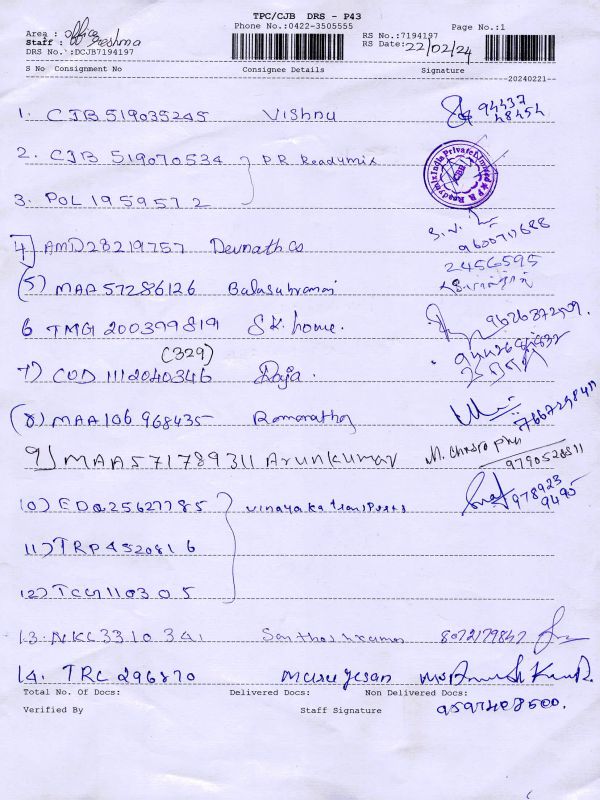 TPC/CJB DRS - P43
Phone No.:0422-3505555
Page No.:1
Area : office
Staff : Greshma
DRS No.:DCJB7194197
RS No.:7194197
RS Date: 22/02/24
S No Consignment No Consignee Details Signature
20240221
1. CJB 519035245 Vishnu 94437 48454
2. CJB 519070534 P.R Readymix
3. POL 1959572
4) AMD28219757 Devnath Co
2456595
5) MAA 57286126 Balasubramani
6 TMG 200399819 S.K. home.
(329)
7) COD 1112040346 Raja.
8) MAA106 968435
9) MAA571789311 Arunkumar 9790528811
10) EDQ25627785 Vinayaka transports 978923 9495
11) TRP4320816
12) TCG110305
13. NKL3310341 Santhoshkumar 8072179847
14. TRC 296870 Murugesan
Total No. Of Docs: Delivered Docs: Non Delivered Docs:
Verified By Staff Signature 9597408500.